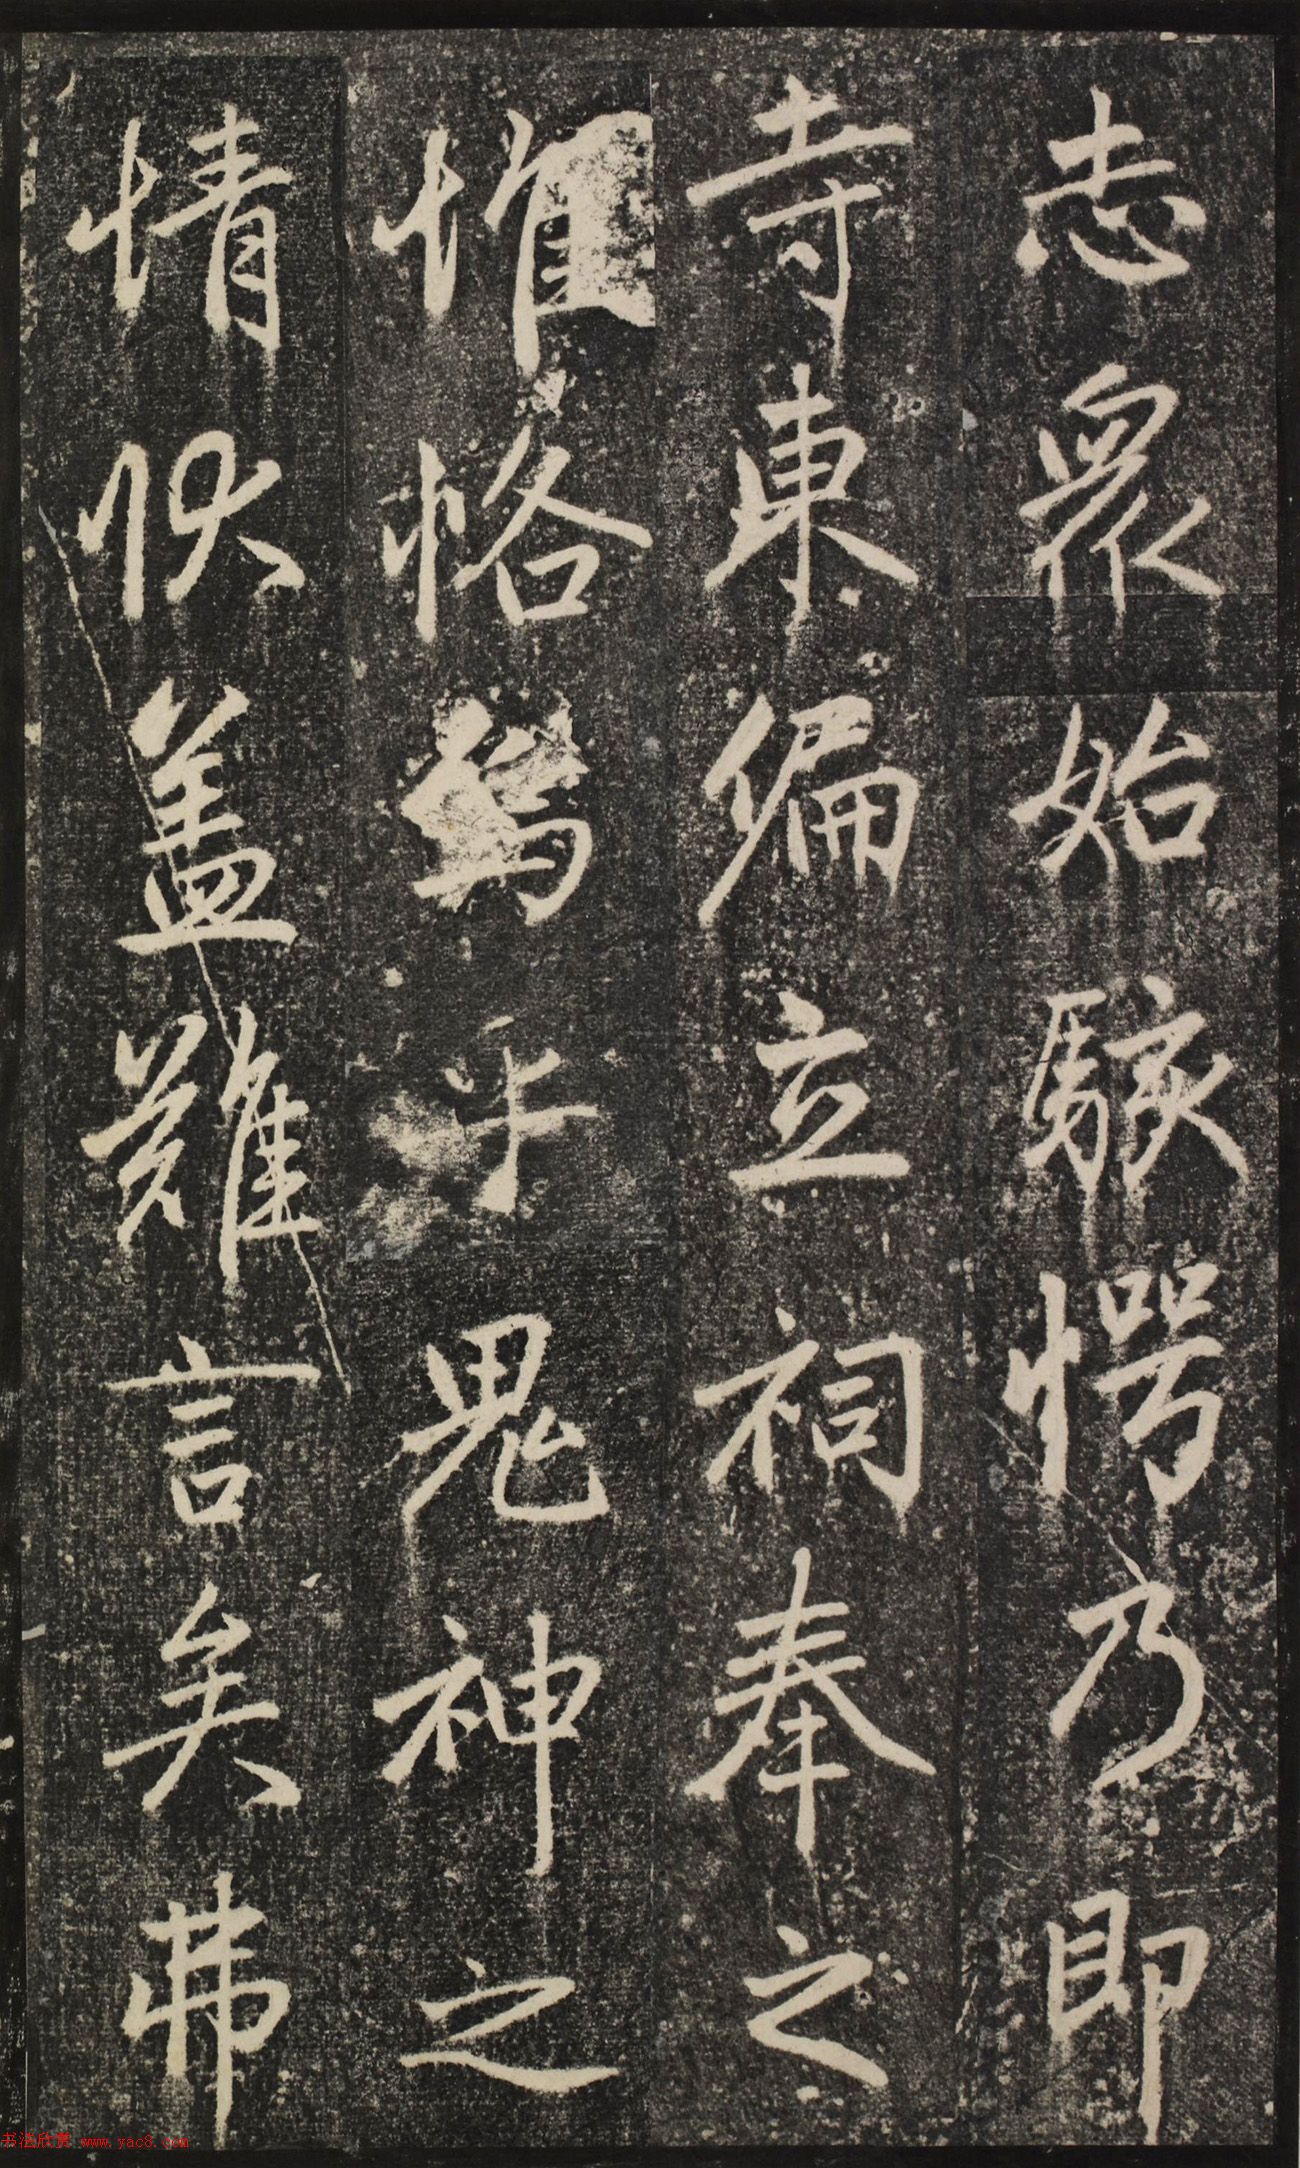 志衆始駭愕乃即
寺東偏立祠奉之
惟恪焉乎鬼神之
情狀蓋難言矣弗
书法欣赏 www.yac8.com